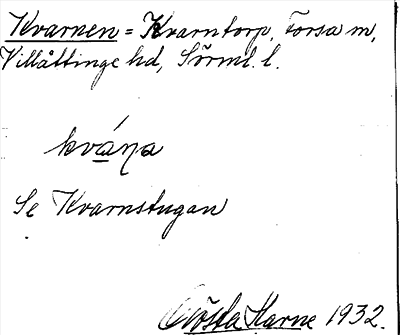 Kvarnen = Kvarntorp, Forsa m,
Villåttinge hd, Sörml. l.
kvána
Se Kvarnstugan
Gösta Harne 1932.